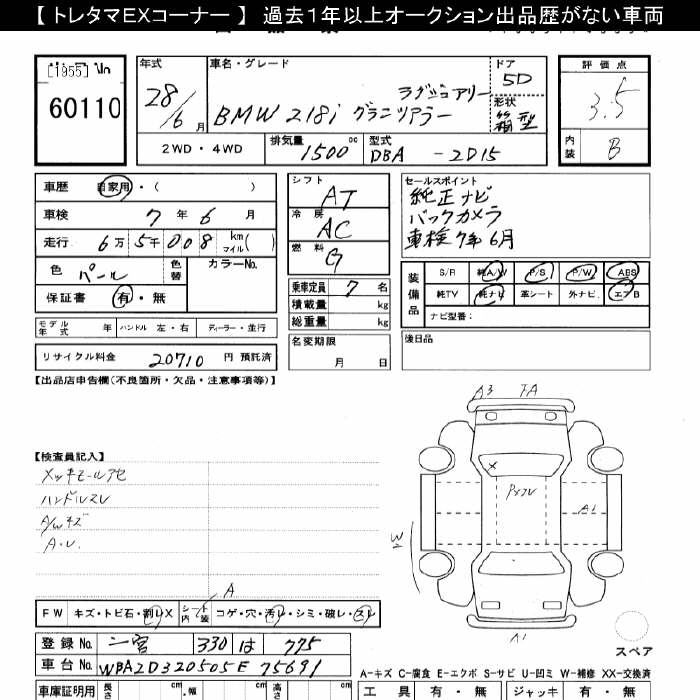 【 トレタマEXコーナー 】 過去1年以上オークション出品歴がない車両
[1955] 60110
年式 28/6 月
車名・グレード ラグジュアリー
BMW 218i グランツアラー
ドア 5D
形状 箱型
評価点 3.5
内装 B
2WD・4WD 排気量 1500 cc 型式 DBA - 2D15
車歴 自家用・( )
車検 7 年 6 月
走行 6万 5千 008 km マイル( )
色 パール 色替 カラーNo.
保証書 有・無
シフト AT
冷房 AC
燃料 G
乗車定員 7 名
積載量 kg
総重量 kg
名変期限 月 日
セールスポイント
純正ナビ
バックカメラ
車検7年6月
装備品 S/R 純A/W P/S P/W ABS
純TV 純ナビ 革シート 外ナビ エアB
ナビ型番:
後日品
モデル年式 年 ハンドル 左・右 ディーラー・並行
リサイクル料金 20710 円 預託済
【出品店申告欄(不良箇所・欠品・注意事項等)】
【検査員記入】
メッキモールアセ
ハンドルスレ
A/Wキズ
A・U.
A
A3 FA
A1
W1
A1
FW キズ・トビ石・割レX シート内装 コゲ・穴・汚レ・シミ・破レ・スレ
登録No. 一宮 330 は 775
車台No. WBA2D320505E75691
スペア
A-キズ C-腐食 E-エクボ S-サビ U-凹ミ W-補修 XX-交換済
車庫証明用 長さ cm 幅 cm 高さ cm
工具 有・無 ジャッキ 有・無